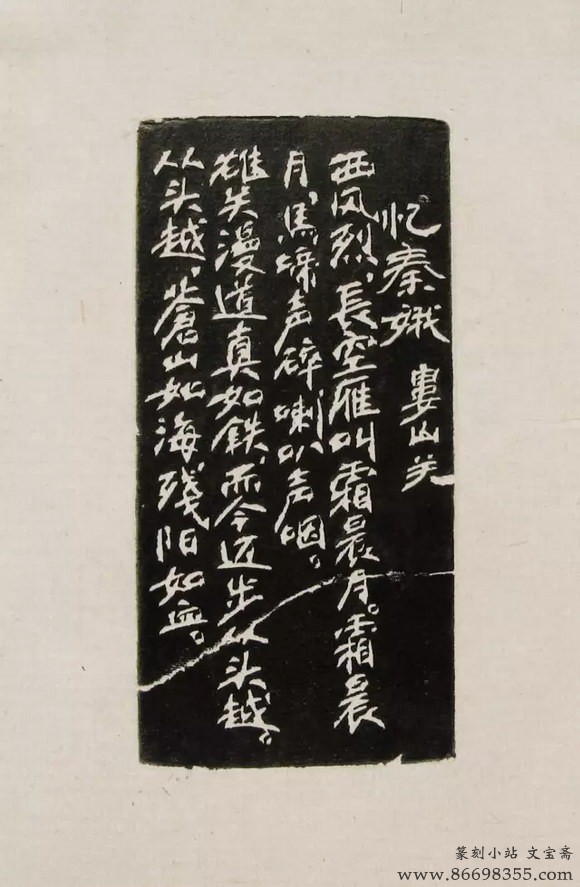 忆秦娥 娄山关
西风烈，長空雁叫霜晨月。霜晨
月，馬蹄声碎，喇叭声咽。
雄关漫道真如铁，而今迈步从头越。
从头越，苍山如海，残阳如血。
篆刻小站 文宝斋
www.86698355.com